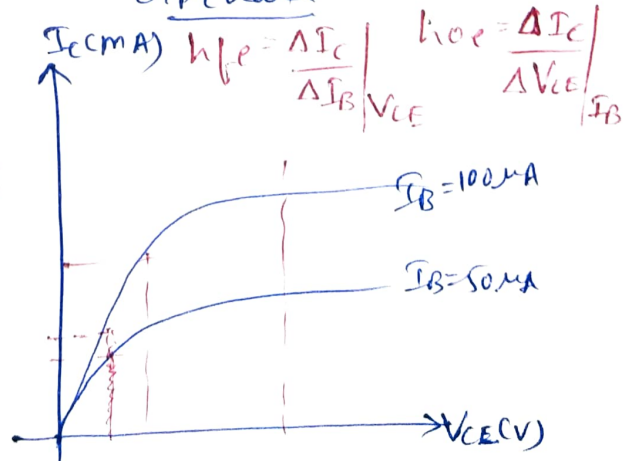 Ic(mA) hfe = ΔIc / ΔIB | VCE hoe = ΔIc / ΔVCE | IB
IB=100μA
IB=50μA
VCE(V)